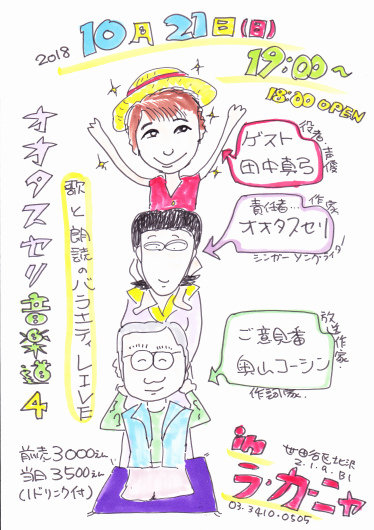 2018 10月21日(日)
19:00〜
18:00 OPEN
オオタスセリ音楽道4
歌と朗読のバラエティLIVE
役者・声優
ゲスト
田中真弓
責任者… 作家
オオタスセリ
シンガーソングライター
放送作家
ご意見番
奥山コーシン
作詞家
前売3000えん
当日3500えん
(1ドリンク付)
in
世田谷区北沢
2.1.9.B1
ラ・カーニャ
03.3410.0505